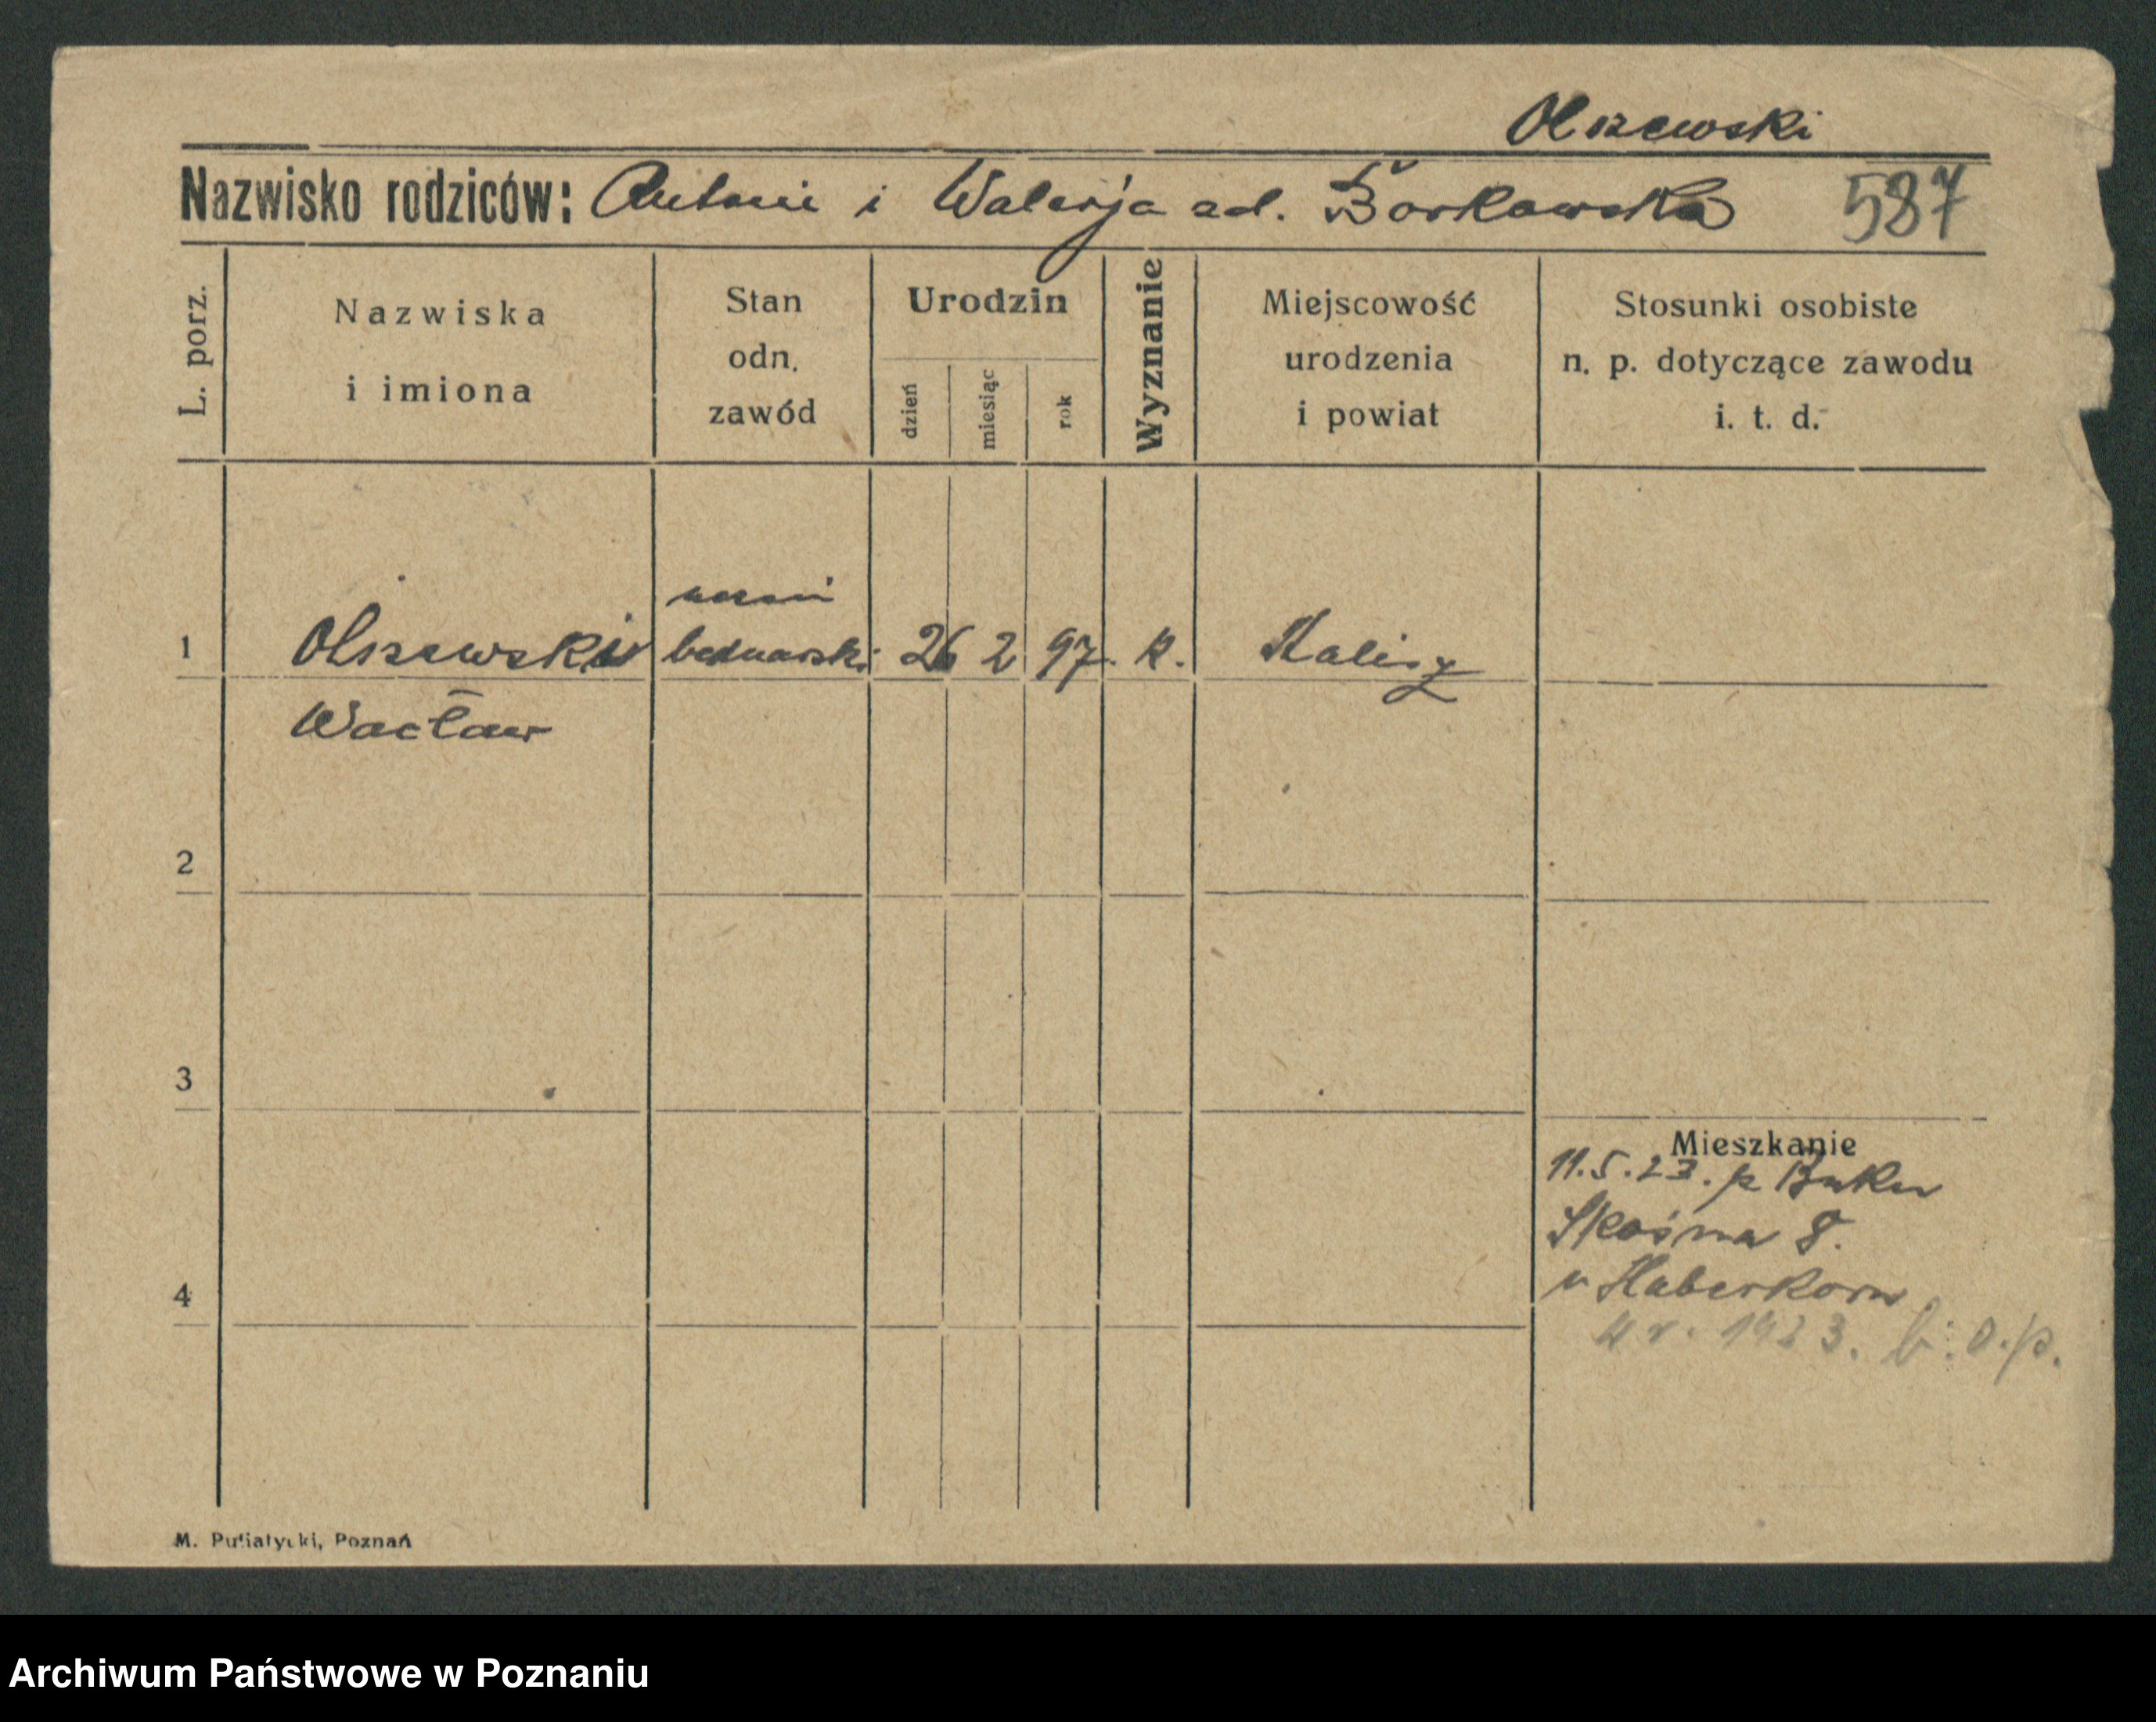 Olszewski
Nazwisko rodziców: Antoni i Walerja zd. Borkowska 587
L. porz.
Nazwiska i imiona
Stan odn. zawód
Urodzin
dzień
miesiąc
rok
Wyznanie
Miejscowość urodzenia i powiat
Stosunki osobiste n. p. dotyczące zawodu i. t. d.
uczeń
1 Olszewski bednarski 26 2 97. k. Kalisz
Wacław
2
3
Mieszkanie
11.5.23. p Buku
Skośna 8.
u Haberkorn
4
1923. b. o. p.
M. Putiatycki, Poznań
Archiwum Państwowe w Poznaniu